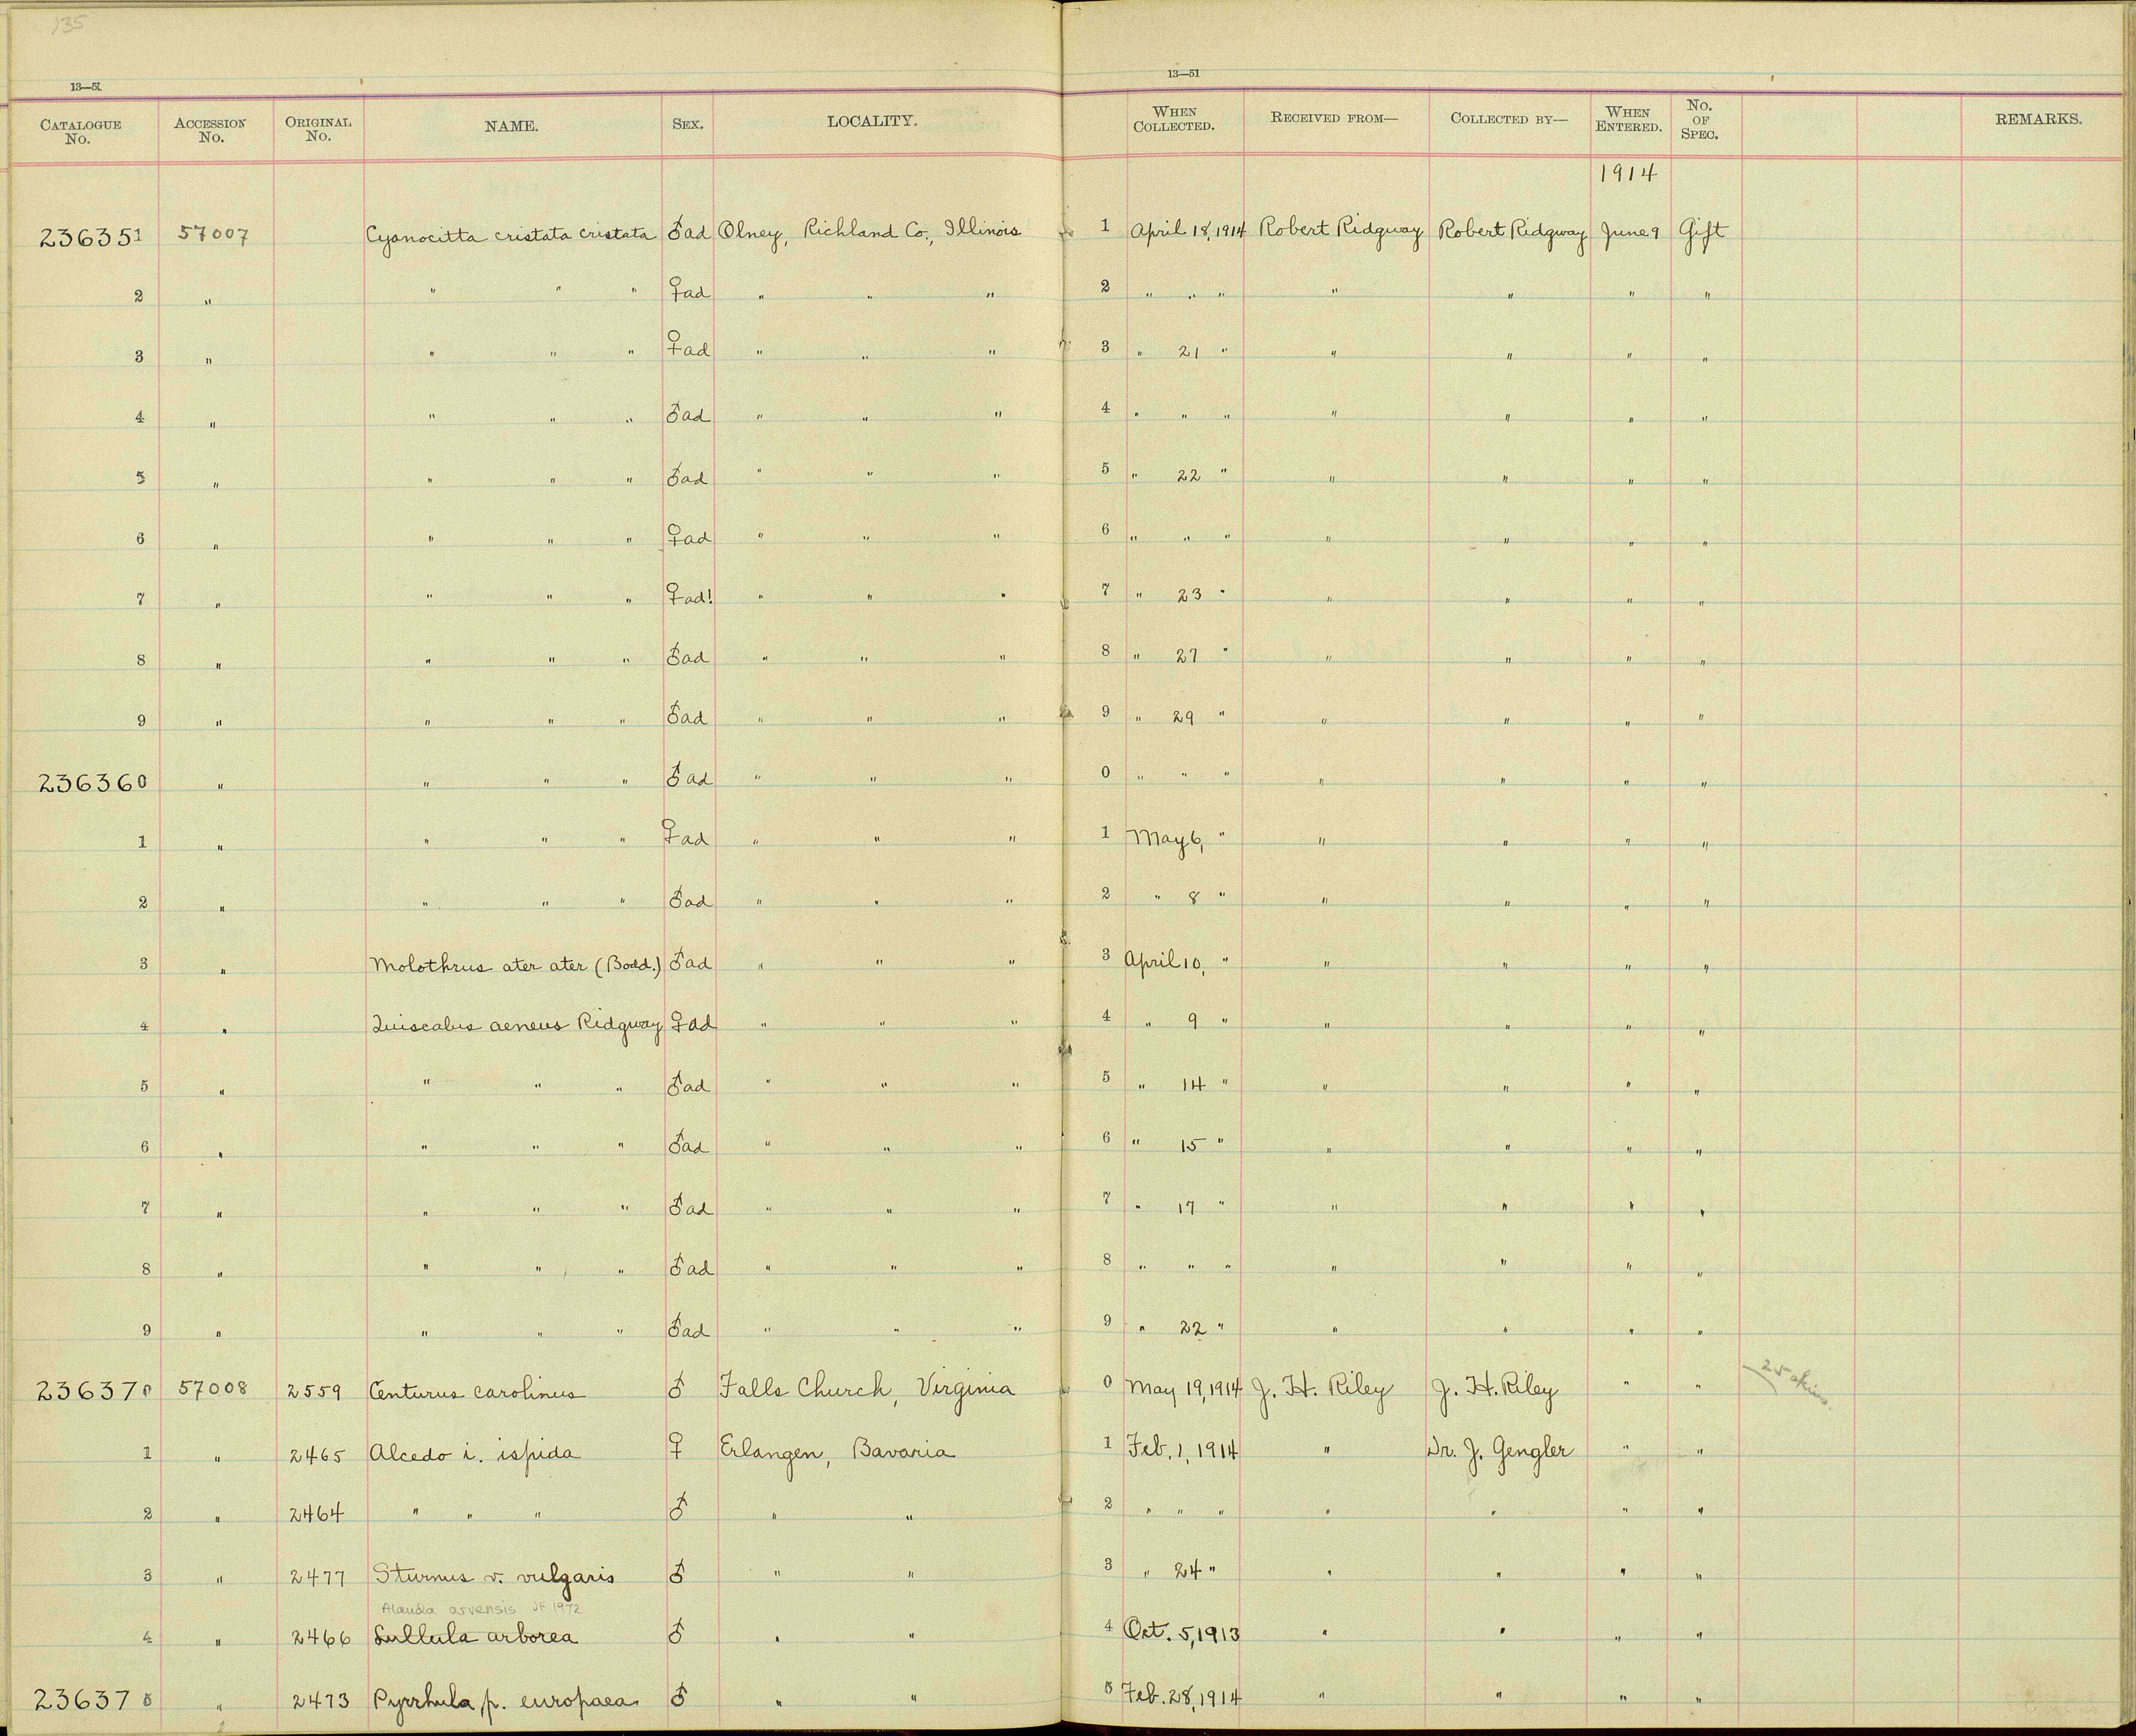 135
13—51
13—51
CATALOGUE No. ACCESSION No. ORIGINAL No. NAME. SEX. LOCALITY. WHEN COLLECTED. RECEIVED FROM— COLLECTED BY— WHEN ENTERED. No. OF SPEC. REMARKS.
1914
236351 57007 Cyanocitta cristata cristata ♂ad Olney, Richland Co., Illinois 1 April 18, 1914 Robert Ridgway Robert Ridgway June 9 Gift
2 " " " " ♀ad " " " 2 " " " " " " "
3 " " " " ♀ad " " " 3 " 21 " " " " "
4 " " " " ♂ad " " " 4 " " " " " " "
5 " " " " ♂ad " " " 5 " 22 " " " " "
6 " " " " ♀ad " " " 6 " " " " " " "
7 " " " " ♀ad! " " " 7 " 23 " " " " "
8 " " " " ♂ad " " " 8 " 27 " " " " "
9 " " " " ♂ad " " " 9 " 29 " " " " "
236360 " " " " ♂ad " " " 0 " " " " " " "
1 " " " " ♀ad " " " 1 May 6, " " " " "
2 " " " " ♂ad " " " 2 " 8 " " " " "
3 " Molothrus ater ater (Bodd.) ♂ad " " " 3 April 10, " " " " "
4 " Quiscalus aeneus Ridgway ♀ad " " " 4 " 9 " " " " "
5 " " " " ♂ad " " " 5 " 14 " " " " "
6 " " " " ♂ad " " " 6 " 15 " " " " "
7 " " " " ♂ad " " " 7 " 17 " " " " "
8 " " " " ♂ad " " " 8 " " " " " " "
9 " " " " ♂ad " " " 9 " 22 " " " " "
236370 57008 2559 Centurus carolinus ♂ Falls Church, Virginia 0 May 19, 1914 J. H. Riley J. H. Riley " " 25 skins
1 " 2465 Alcedo i. ispida ♀ Erlangen, Bavaria 1 Feb. 1, 1914 " Dr. J. Gengler " "
2 " 2464 " " " ♂ " " 2 " " " " " " "
3 " 2477 Sturnus v. vulgaris ♂ " " 3 " 24 " " " " "
Alauda arvensis 1972
4 " 2466 Lullula arborea ♂ " " 4 Oct. 5, 1913 " " " "
236375 " 2473 Pyrrhula p. europaea ♂ " " 5 Feb. 28, 1914 " " " "